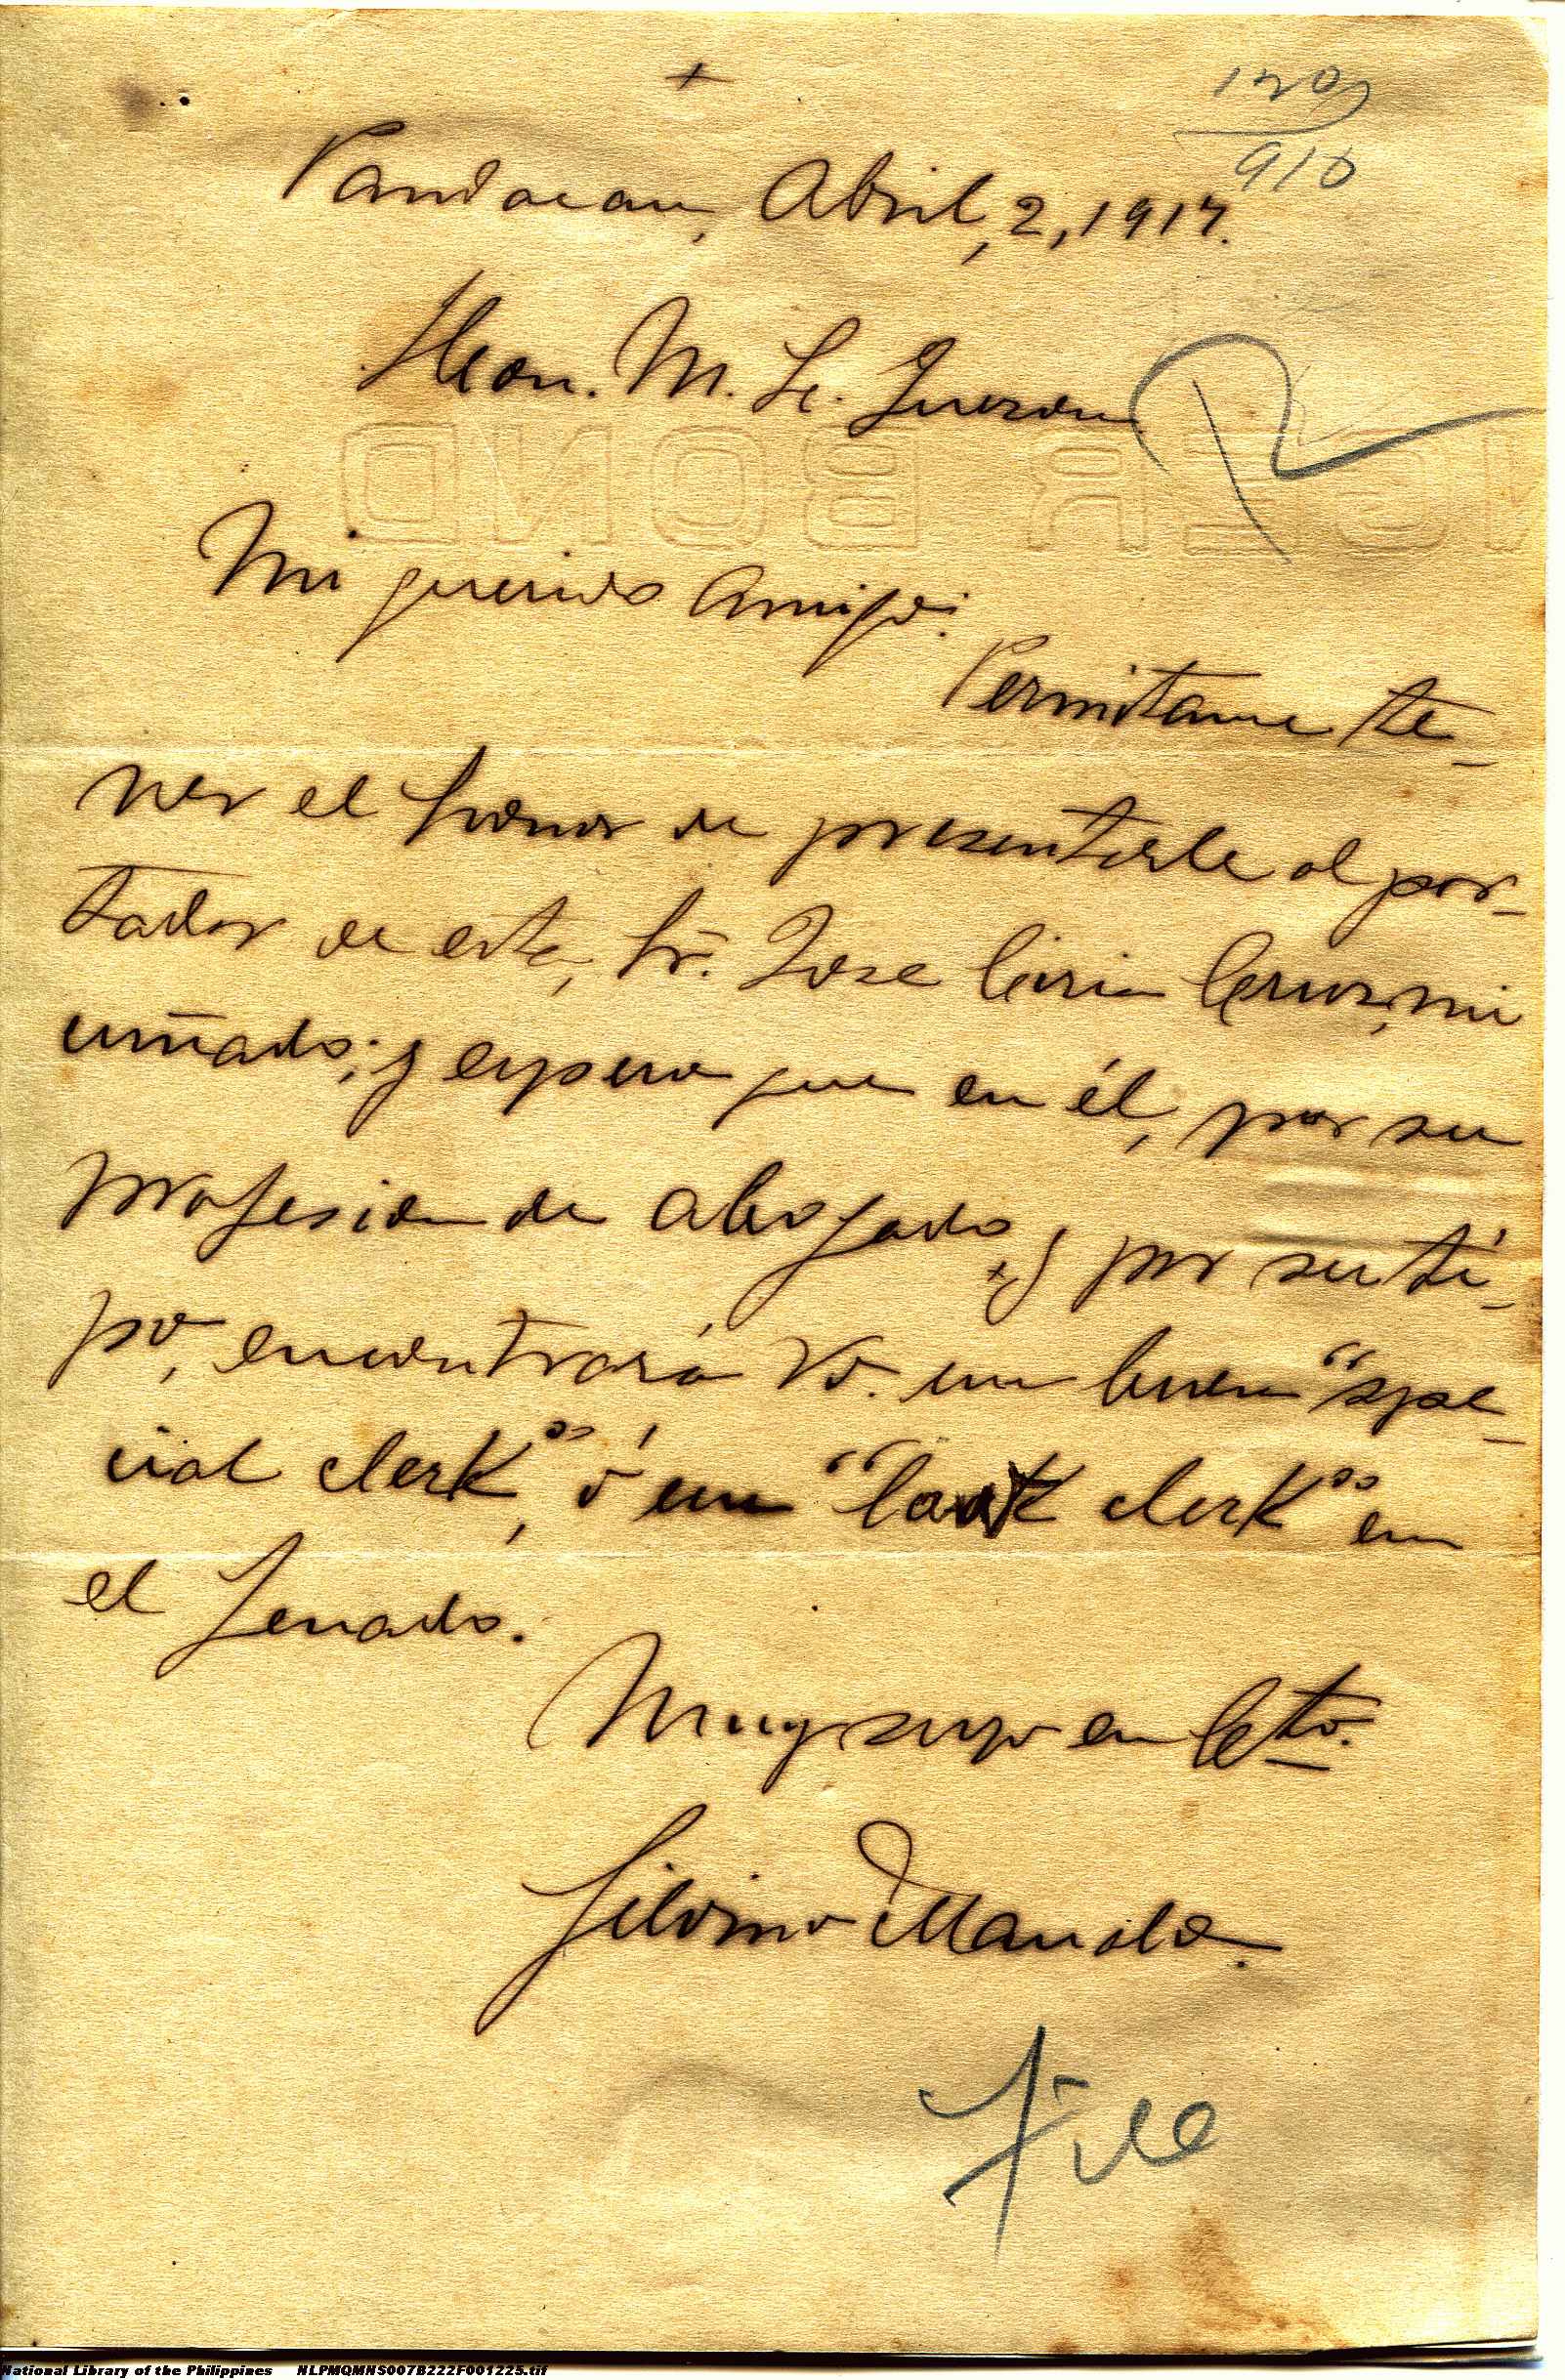 +
Pandacan, Abril, 2, 1917.
Hon. M. L. Quezon
NGER BOND
Mi querido amigo:
Permitame te-
ner el honor de presentarle al por-
tador de esta, Sr. Jose Ciria Cruz, mi
cuñado; y espero que en él, por su
profesion de abogado, y por su ti-
po, encontrará Vd. un buen "spe-
cial clerk", ó un "bank clerk" en
el Senado.
Muy suyo en Cto.
Silvino Manalo.
File
National Library of the Philippines NLPMQMNS007B222F001225.tif